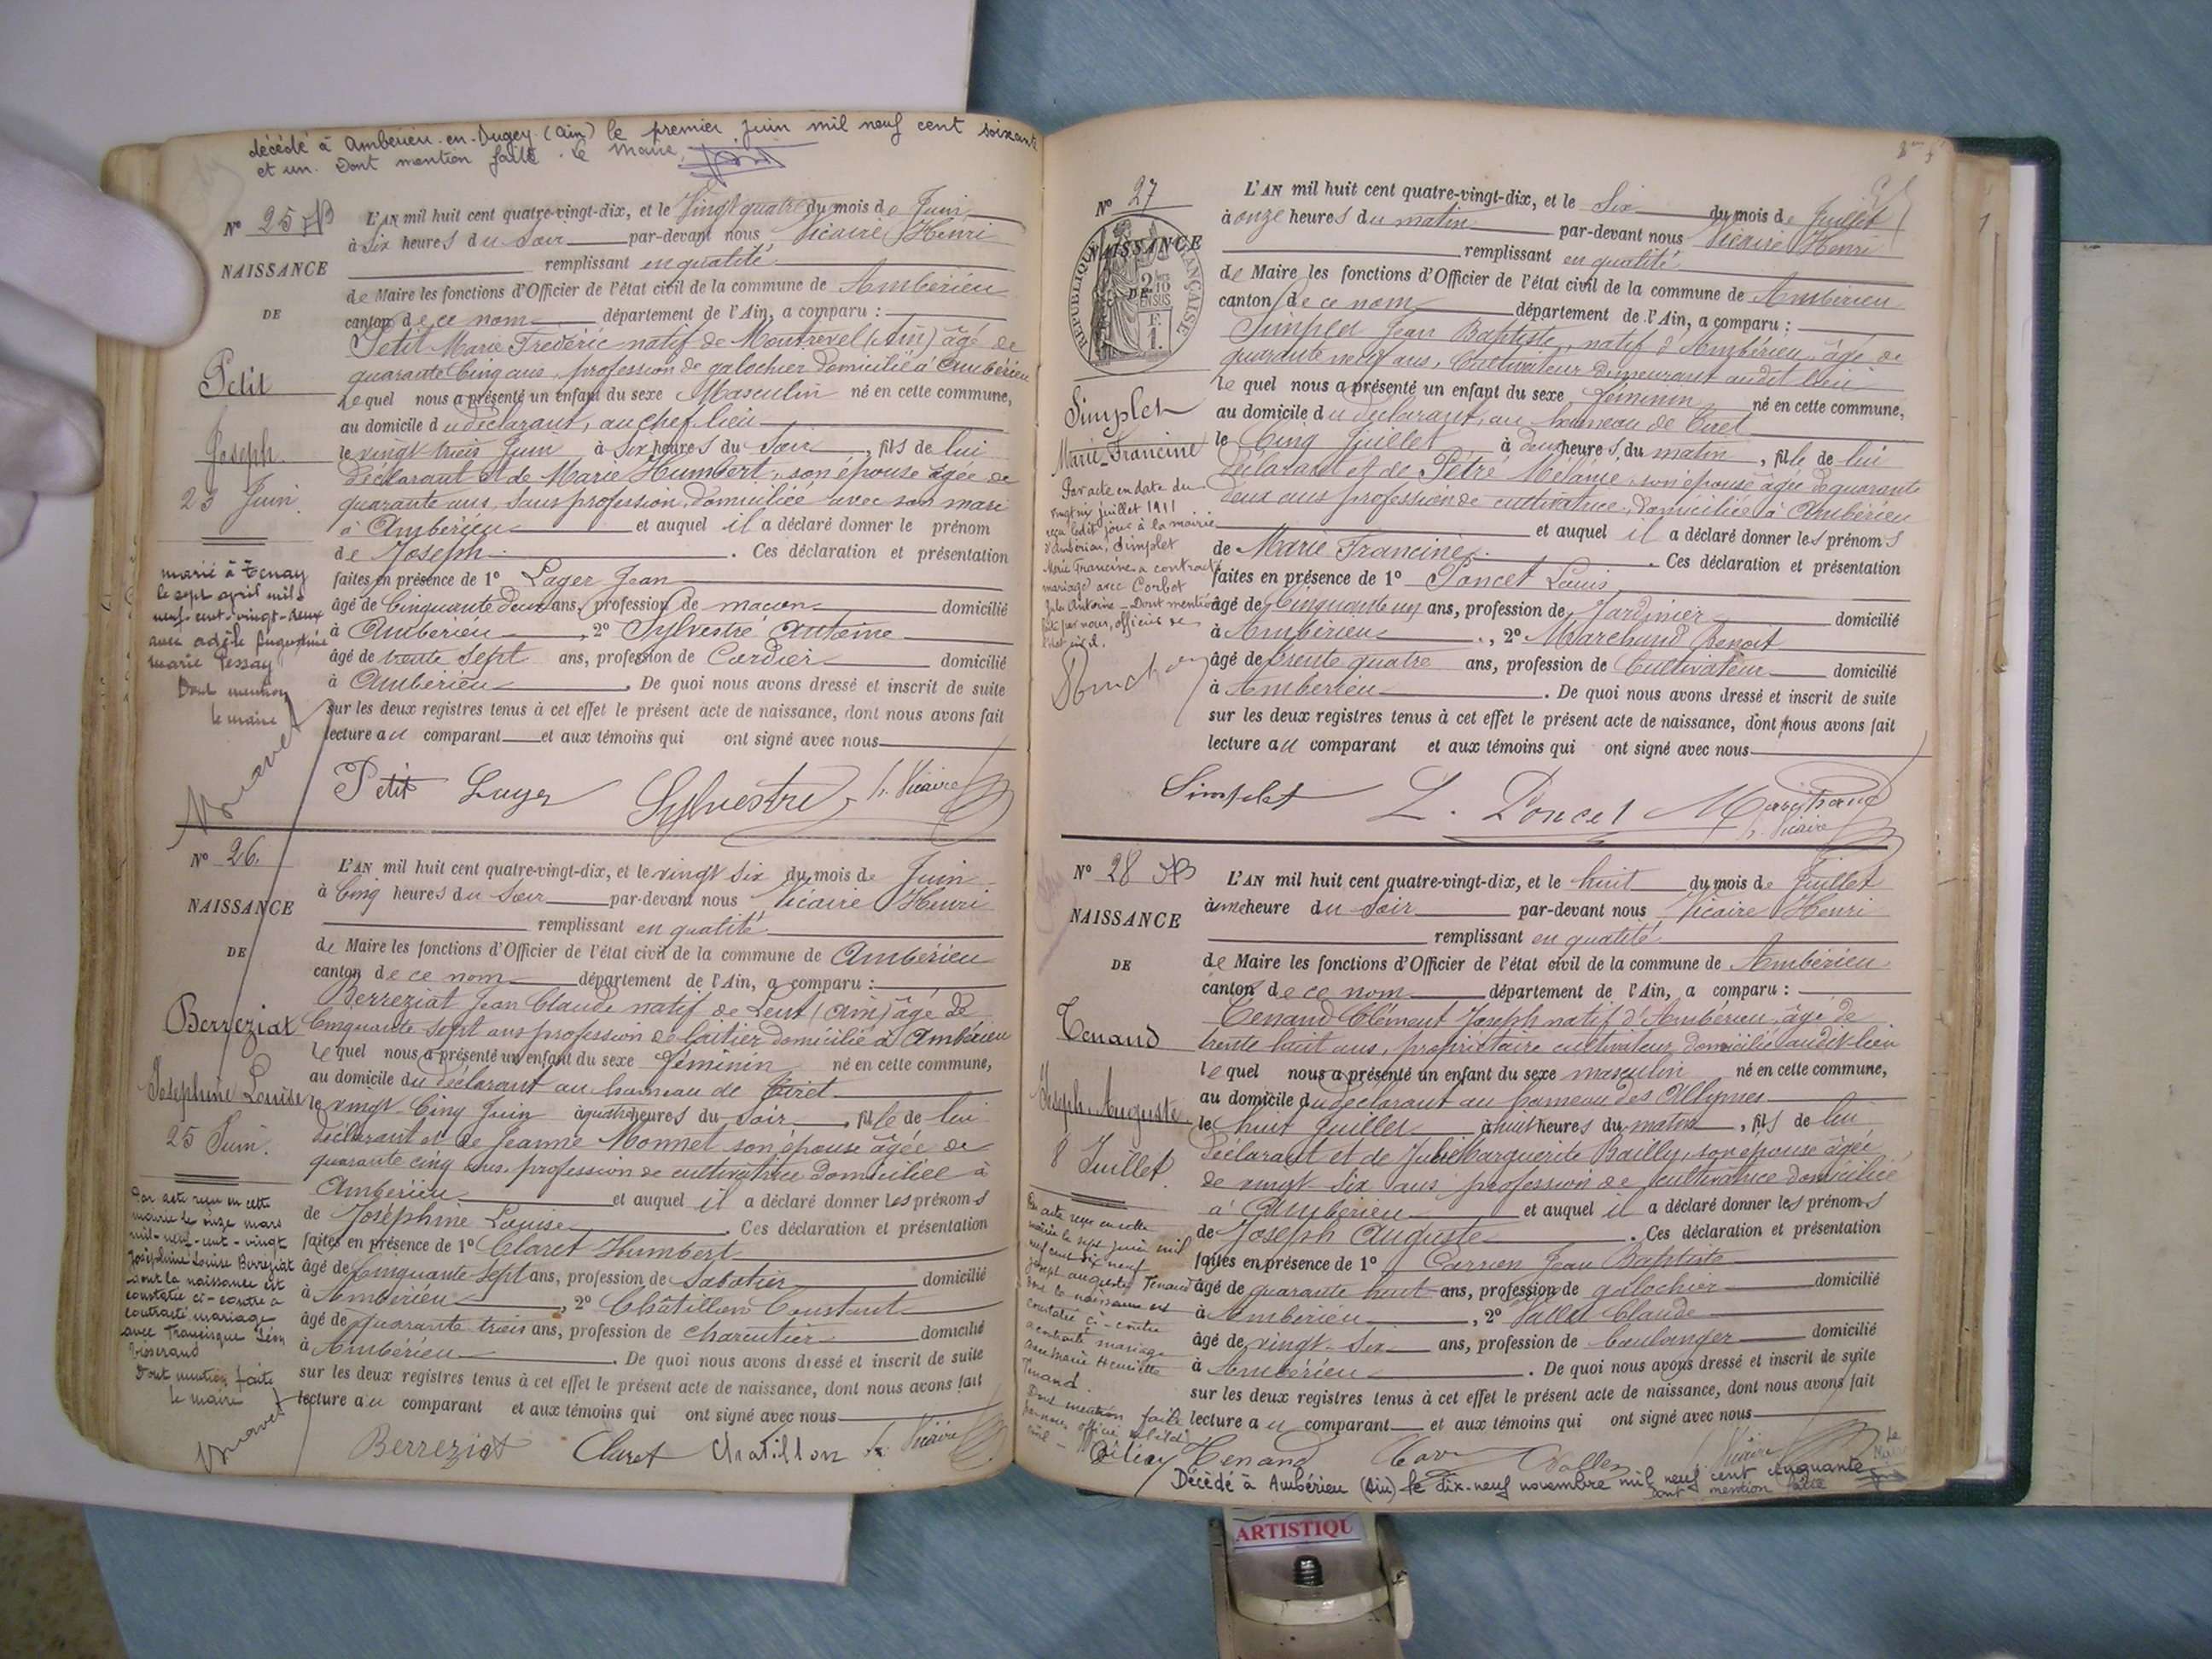 décédé à Ambérieu-en-Bugey (Ain) le premier juin mil neuf cent soixante
et un. Dont mention faite. Le Maire,
N° 25
NAISSANCE
DE
Petit
Joseph
23 Juin
marié à Tenay
le sept avril mil
neuf-cent-vingt-deux
avec Adèle Augustine
Marie Pessay
Dont mention
le maire
L'AN mil huit cent quatre-vingt-dix, et le Vingt quatre du mois de Juin
à six heures du soir par-devant nous Vicaire Henri
remplissant en qualité
de Maire les fonctions d'Officier de l'état civil de la commune de Ambérieu
canton de ce nom département de l'Ain, a comparu :
Petit Marie Frédéric natif de Montrevel (Ain) âgé de
quarante cinq ans, profession de galochier domicilié à Ambérieu
lequel nous a présenté un enfant du sexe Masculin né en cette commune,
au domicile du déclarant, au chef lieu
le vingt trois Juin à six heures du soir, fils de lui
déclarant et de Marie Humbert, son épouse âgée de
quarante ans, sans profession, domiciliée avec son mari
à Ambérieu et auquel il a déclaré donner le prénom
de Joseph. Ces déclaration et présentation
faites en présence de 1° Lager Jean
âgé de Cinquante deux ans, profession de macon domicilié
à Ambérieu, 2° Sylvestre Antoine
âgé de trente sept ans, profession de Cordier domicilié
à Ambérieu. De quoi nous avons dressé et inscrit de suite
sur les deux registres tenus à cet effet le présent acte de naissance, dont nous avons fait
lecture au comparant et aux témoins qui ont signé avec nous
Petit Lager Sylvestre h. Vicaire
N° 26
NAISSANCE
DE
Berreziat
Joséphine Louise
25 Juin
Par acte reçu en cette
mairie le onze mars
mil-neuf-cent-vingt
Joséphine Louise Berreziat
dont la naissance est
constatée ci-contre a
contracté mariage
avec Françisque Léon
Dont mention faite
le maire
L'AN mil huit cent quatre-vingt-dix, et le vingt six du mois de Juin
à Cinq heures du soir par-devant nous Vicaire Henri
remplissant en qualité
de Maire les fonctions d'Officier de l'état civil de la commune de Ambérieu
canton de ce nom département de l'Ain, a comparu :
Berreziat Jean Claude natif de Lent (Ain) âgé de
Cinquante sept ans profession de laitier domicilié à Ambérieu
lequel nous a présenté un enfant du sexe féminin né en cette commune,
au domicile du déclarant au hameau de Tiret
le vingt-Cinq Juin à quatre heures du soir, fille de lui
déclarant et de Jeanne Monnet son épouse âgée de
quarante cinq ans, profession de cultivatrice domiciliée à
Ambérieu et auquel il a déclaré donner les prénoms
de Joséphine Louise. Ces déclaration et présentation
faites en présence de 1° Claret Humbert
âgé de Cinquante-sept ans, profession de Sabotier domicilié
à Ambérieu, 2° Châtillon Constant
âgé de quarante trois ans, profession de charcutier domicilié
à Ambérieu. De quoi nous avons dressé et inscrit de suite
sur les deux registres tenus à cet effet le présent acte de naissance, dont nous avons fait
lecture au comparant et aux témoins qui ont signé avec nous
Berreziat Claret Chatillon h. Vicaire
N° 27
NAISSANCE
DE
RÉPUBLIQUE FRANÇAISE
Simplet
Marie-Francine
Par acte en date du
vingt-six juillet 1911
reçu ledit jour à la mairie
d'Ambérieu, Simplet
Marie Francine a contracté
mariage avec Corbet
Jules Antoine – Dont mention
faite par nous, officier de
l'état civil.
L'AN mil huit cent quatre-vingt-dix, et le Six du mois de Juillet
à onze heures du matin par-devant nous Vicaire Henri
remplissant en qualité
de Maire les fonctions d'Officier de l'état civil de la commune de Ambérieu
canton de ce nom département de l'Ain, a comparu :
Simplet Jean Baptiste, natif d'Ambérieu, âgé de
quarante neuf ans, Cultivateur demeurant audit lieu
lequel nous a présenté un enfant du sexe féminin né en cette commune,
au domicile du déclarant, au hameau de Tiret
le Cinq Juillet à deux heures du matin, fille de lui
déclarant et de Pétré Mélanie, son épouse âgée de quarante
deux ans profession de cultivatrice, domiciliée à Ambérieu
et auquel il a déclaré donner les prénoms
de Marie Francine. Ces déclaration et présentation
faites en présence de 1° Poncet Louis
âgé de Cinquante six ans, profession de Jardinier domicilié
à Ambérieu, 2° Marchand Benoit
âgé de trente quatre ans, profession de Cultivateur domicilié
à Ambérieu. De quoi nous avons dressé et inscrit de suite
sur les deux registres tenus à cet effet le présent acte de naissance, dont nous avons fait
lecture au comparant et aux témoins qui ont signé avec nous
Simplet L. Poncet Marchand
h. Vicaire
N° 28
NAISSANCE
DE
Tenand
Joseph Auguste
8 Juillet
Par acte reçu en cette
mairie le sept juin mil
neuf cent dix neuf
Joseph Auguste Tenand
dont la naissance est
constatée ci-contre
a contracté mariage
avec Marie Henriette
Tenand.
Dont mention faite
par nous officier de l'état
civil –
L'AN mil huit cent quatre-vingt-dix, et le huit du mois de Juillet
à une heure du soir par-devant nous Vicaire Henri
remplissant en qualité
de Maire les fonctions d'Officier de l'état civil de la commune de Ambérieu
canton de ce nom département de l'Ain, a comparu :
Tenand Clément Joseph natif d'Ambérieu, âgé de
trente huit ans, propriétaire cultivateur domicilié audit lieu
lequel nous a présenté un enfant du sexe masculin né en cette commune,
au domicile du déclarant au hameau des Allymes
le huit Juillet à huit heures du matin, fils de lui
déclarant et de Julie Marguerite Bailly, son épouse âgée
de vingt six ans profession de cultivatrice domiciliée
à Ambérieu et auquel il a déclaré donner les prénoms
de Joseph Auguste. Ces déclaration et présentation
faites en présence de 1° Jean Baptiste
âgé de quarante huit ans, profession de galochier domicilié
à Ambérieu, 2° Vallet Claude
âgé de vingt-six ans, profession de boulanger domicilié
à Ambérieu. De quoi nous avons dressé et inscrit de suite
sur les deux registres tenus à cet effet le présent acte de naissance, dont nous avons fait
lecture au comparant et aux témoins qui ont signé avec nous
Tenand h. Vicaire
Décédé à Ambérieu (Ain) le dix-neuf novembre mil neuf cent cinquante
Dont mention faite
Le Maire
ARTISTIQU